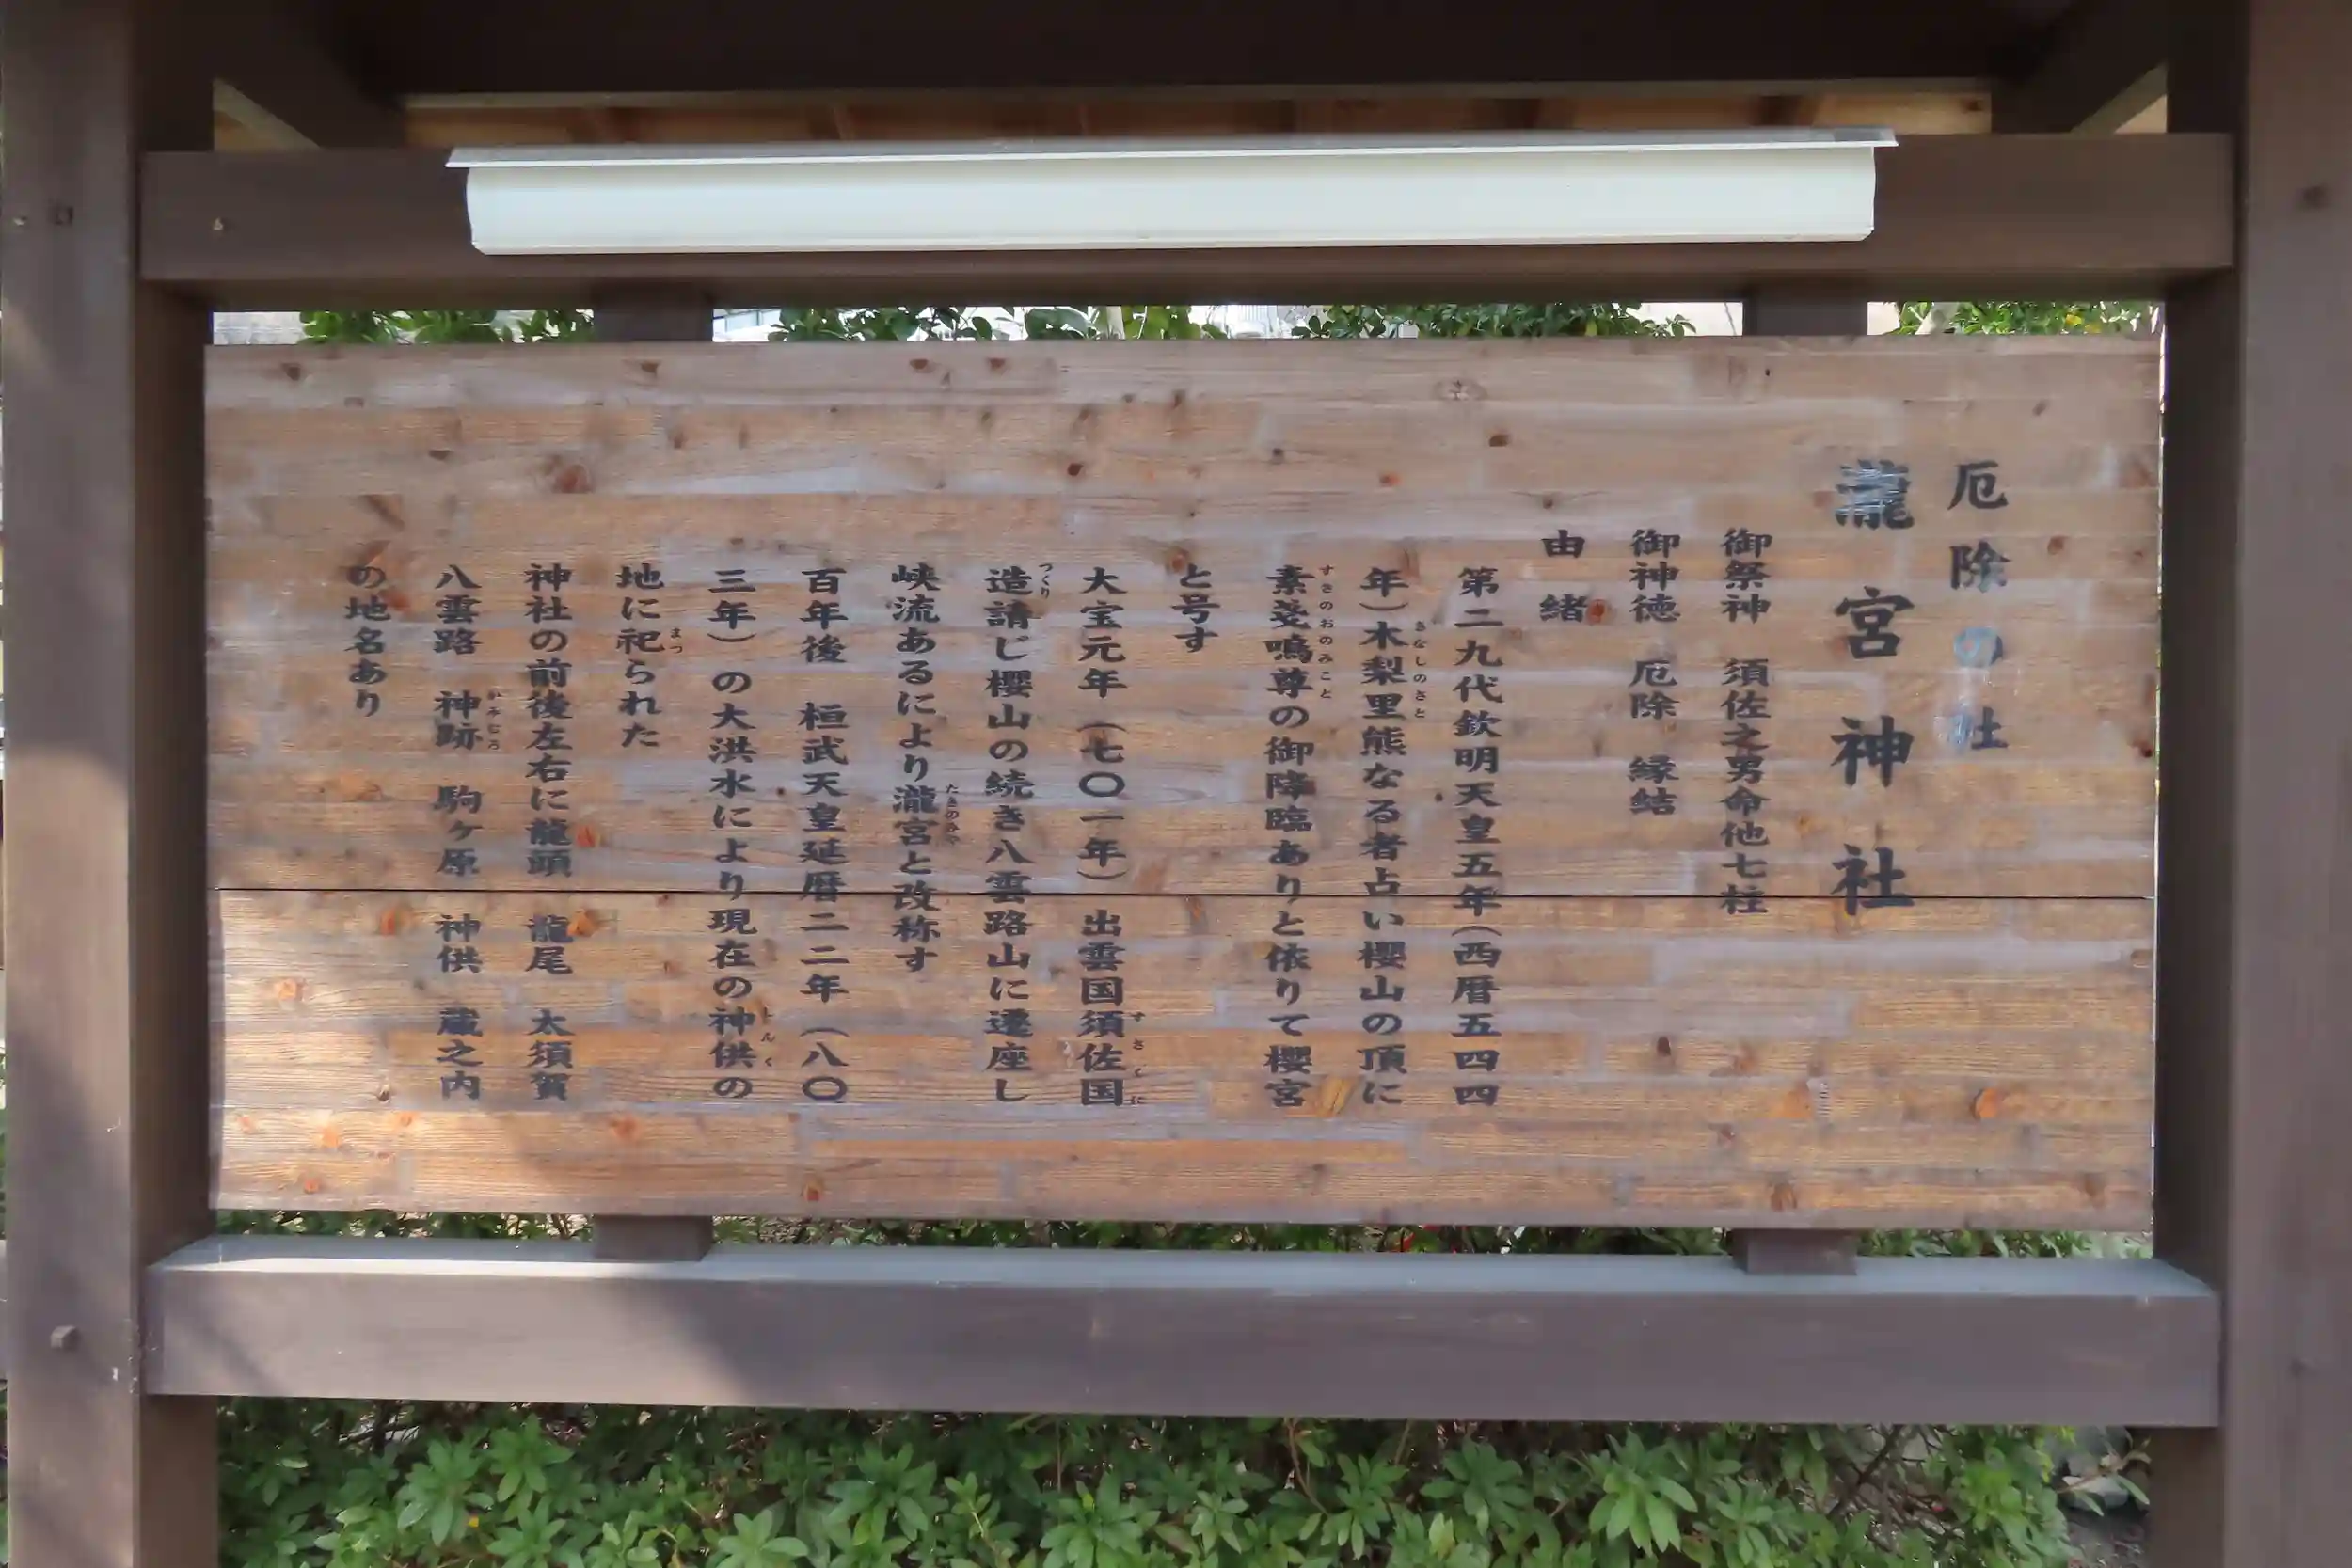 厄除の社
瀧宮神社
御祭神　須佐之男命他七柱
御神徳　厄除　縁結
由緒
第二九代欽明天皇五年(西暦五四四
年)木梨里熊なる者占い櫻山の頂に
きなしのさと
素戔嗚尊の御降臨ありと依りて櫻宮
すさのおのみこと
と号す
大宝元年(七〇一年)出雲国須佐国
すさくに
造請じ櫻山の続き八雲路山に遷座し
つくり
峡流あるにより瀧宮と改称す
たきのみや
百年後　桓武天皇延暦二二年(八〇
三年)の大洪水により現在の神供の
じんく
地に祀られた
まつ
神社の前後左右に龍頭　龍尾　太須賀
八雲路　神跡　駒ヶ原　神供　蔵之内
かみむろ
の地名あり